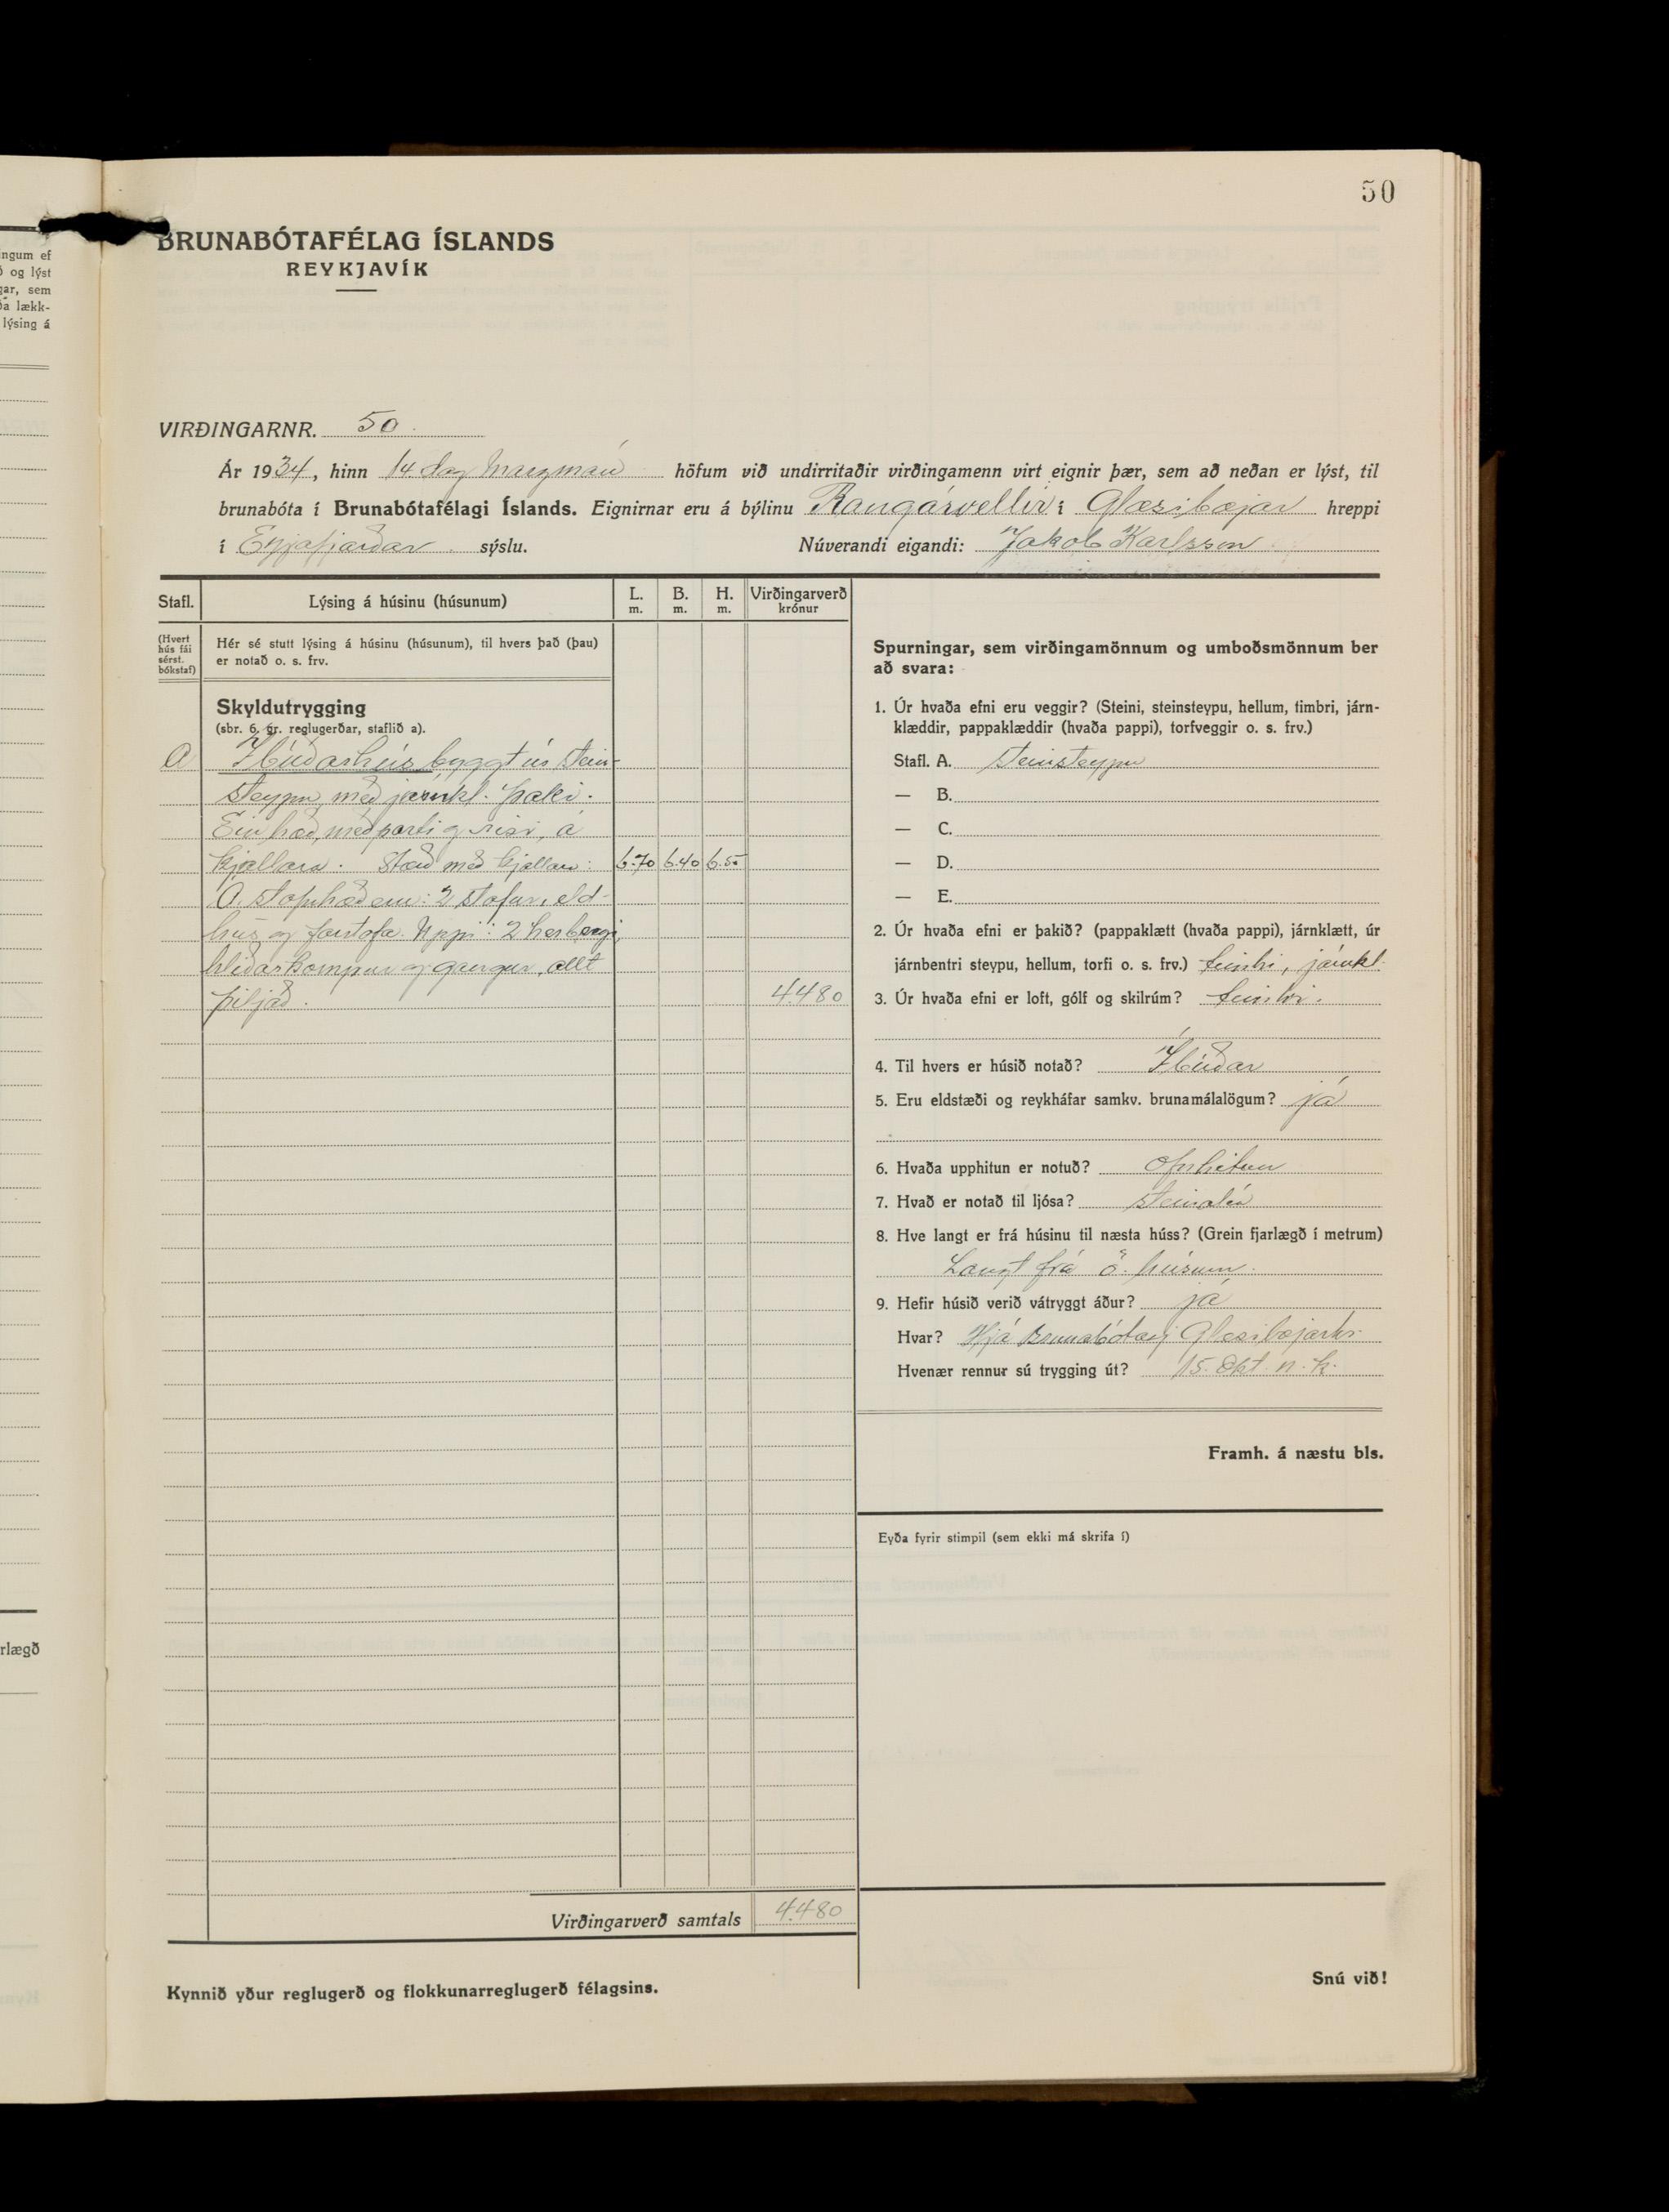 50
BRUNABÓTAFÉLAG ÍSLANDS
REYKJAVÍK
VIRÐINGARNR. 50.
Ár 1934, hinn 14. dag marzmán höfum við undirritaðir virðingamenn virt eignir þær, sem að neðan er lýst, til
brunabóta í Brunabótafélagi Íslands. Eignirnar eru á býlinu Rangárvellir í Glæsibæjar hreppi
í Eyjafjarðar sýslu. Núverandi eigandi: Jakob Karlsson
Stafl. Lýsing á húsinu (húsunum) L. m. B. m. H. m. Virðingarverð krónur
(Hvert hús fái sérst. bókstaf)
Hér sé stutt lýsing á húsinu (húsunum), til hvers það (þau)
er notað o. s. frv.
Skyldutrygging
(sbr. 6. gr. reglugerðar, staflið a).
A Íbúðarhús byggt úr stein-
steypu, með járnkl. þaki.
Ein hæð, með porti og risi, á
kjallara. Stærð með kjallara: 6.70 6.40 6.50
Á stofuhæðinni: 2 stofur, eld-
hús og forstofa. Uppi: 2 herbergi,
hliðarkompur og gangur, allt
þiljað. 4480
Virðingarverð samtals 4480
Kynnið yður reglugerð og flokkunarreglugerð félagsins.
Spurningar, sem virðingamönnum og umboðsmönnum ber
að svara:
1. Úr hvaða efni eru veggir? (Steini, steinsteypu, hellum, timbri, járn-
klæddir, pappaklæddir (hvaða pappi), torfveggir o. s. frv.)
Stafl. A. Steinsteypu
— B.
— C.
— D.
— E.
2. Úr hvaða efni er þakið? (pappaklætt (hvaða pappi), járnklætt, úr
járnbentri steypu, hellum, torfi o. s. frv.) timbri, járnkl.
3. Úr hvaða efni er loft, gólf og skilrúm? timbri.
4. Til hvers er húsið notað? Íbúðar
5. Eru eldstæði og reykháfar samkv. brunamálalögum? já
6. Hvaða upphitun er notuð? Ofnhitun
7. Hvað er notað til ljósa? steinolía
8. Hve langt er frá húsinu til næsta húss? (Grein fjarlægð í metrum)
Langt frá ö. húsum.
9. Hefir húsið verið vátryggt áður? já
Hvar? Hjá Brunabótasj Glæsibæjarhr.
Hvenær rennur sú trygging út? 15. Okt. n. k.
Framh. á næstu bls.
Eyða fyrir stimpil (sem ekki má skrifa í)
Snú við!
ngum ef
og lýst
gar, sem
ða lækk-
lýsing á
rlægð